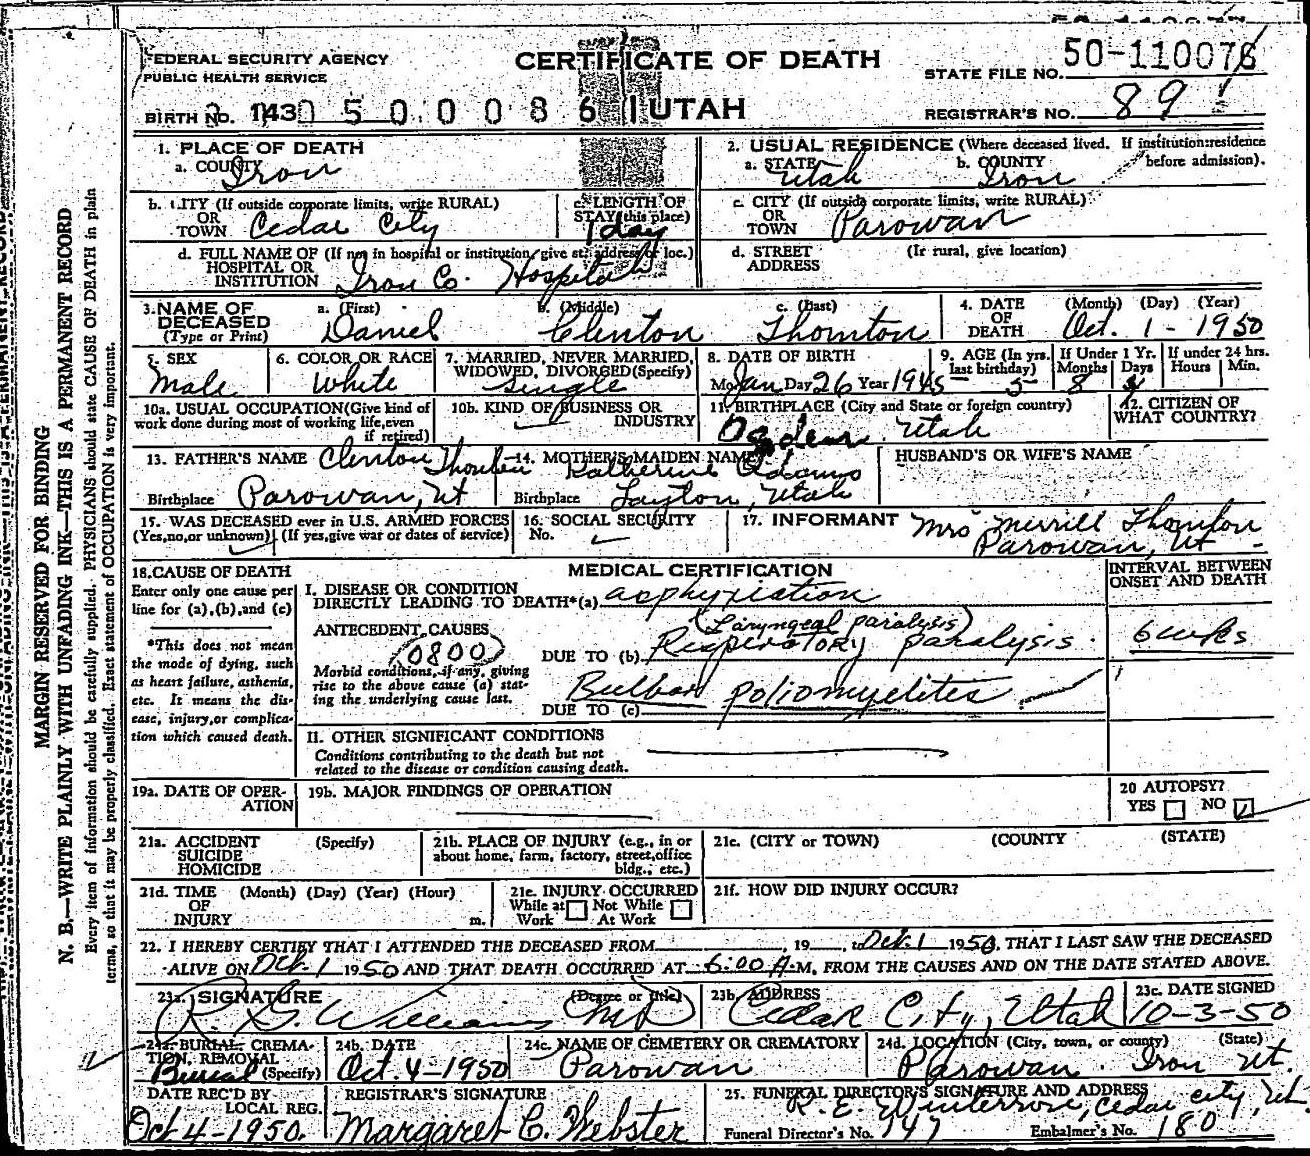 FEDERAL SECURITY AGENCY
PUBLIC HEALTH SERVICE
CERTIFICATE OF DEATH
UTAH
STATE FILE NO. 50-110076
REGISTRAR'S NO. 89
BIRTH NO. 143 0 5 0 0 0 8 6
1. PLACE OF DEATH
a. COUNTY Iron
2. USUAL RESIDENCE (Where deceased lived. If institution:residence before admission).
a. STATE Utah b. COUNTY Iron
b. CITY (If outside corporate limits, write RURAL) OR TOWN Cedar City
c. LENGTH OF STAY (this place) 1 day
c. CITY (If outside corporate limits, write RURAL) OR TOWN Parowan
d. FULL NAME OF (If not in hospital or institution, give st. address or loc.) HOSPITAL OR INSTITUTION Iron Co. Hospital
d. STREET ADDRESS (If rural, give location)
3. NAME OF DECEASED (Type or Print)
a. (First) Daniel b. (Middle) Clenton c. (Last) Thornton
4. DATE OF DEATH (Month) (Day) (Year) Oct. 1 - 1950
5. SEX Male
6. COLOR OR RACE White
7. MARRIED, NEVER MARRIED, WIDOWED, DIVORCED (Specify) Single
8. DATE OF BIRTH Mo. Jan Day 26 Year 1945
9. AGE (In yrs. last birthday) 5
If Under 1 Yr. Months 8 Days
If under 24 hrs. Hours Min.
10a. USUAL OCCUPATION (Give kind of work done during most of working life, even if retired)
10b. KIND OF BUSINESS OR INDUSTRY
11. BIRTHPLACE (City and State or foreign country) Utah
12. CITIZEN OF WHAT COUNTRY?
13. FATHER'S NAME Clenton Thornton
Birthplace Parowan, Ut
14. MOTHER'S MAIDEN NAME Katherine Adams
Birthplace Layton, Utah
HUSBAND'S OR WIFE'S NAME
15. WAS DECEASED ever in U.S. ARMED FORCES (Yes, no, or unknown) (If yes, give war or dates of service)
16. SOCIAL SECURITY No.
17. INFORMANT Mrs Merrill Thornton
Parowan, Ut
18. CAUSE OF DEATH
Enter only one cause per line for (a), (b), and (c)
*This does not mean the mode of dying, such as heart failure, asthenia, etc. It means the disease, injury, or complication which caused death.
MEDICAL CERTIFICATION
INTERVAL BETWEEN ONSET AND DEATH
I. DISEASE OR CONDITION DIRECTLY LEADING TO DEATH*(a) asphyxiation
ANTECEDENT CAUSES (0800)
Morbid conditions, if any, giving rise to the above cause (a) stating the underlying cause last.
(Laryngeal paralysis)
DUE TO (b) Respiratory paralysis. 6 wks
DUE TO (c) Bulbar poliomyelites
II. OTHER SIGNIFICANT CONDITIONS
Conditions contributing to the death but not related to the disease or condition causing death.
19a. DATE OF OPERATION
19b. MAJOR FINDINGS OF OPERATION
20 AUTOPSY? YES NO
21a. ACCIDENT SUICIDE HOMICIDE (Specify)
21b. PLACE OF INJURY (e.g., in or about home, farm, factory, street, office bldg., etc.)
21c. (CITY or TOWN) (COUNTY) (STATE)
21d. TIME OF INJURY (Month) (Day) (Year) (Hour) m.
21e. INJURY OCCURRED While at Work Not While At Work
21f. HOW DID INJURY OCCUR?
22. I HEREBY CERTIFY THAT I ATTENDED THE DECEASED FROM , 19 , to Oct. 1 1950, THAT I LAST SAW THE DECEASED
ALIVE ON Oct. 1 1950 AND THAT DEATH OCCURRED AT 6:00 A.M, FROM THE CAUSES AND ON THE DATE STATED ABOVE.
23a. SIGNATURE (Degree or title) R. G. Williams MD
23b. ADDRESS Cedar City, Utah
23c. DATE SIGNED 10-3-50
24a. BURIAL, CREMATION, REMOVAL (Specify) Burial
24b. DATE Oct. 4-1950
24c. NAME OF CEMETERY OR CREMATORY Parowan
24d. LOCATION (City, town, or county) (State) Parowan Iron Ut.
DATE REC'D BY LOCAL REG. Oct 4-1950.
REGISTRAR'S SIGNATURE Margaret C. Webster
25. FUNERAL DIRECTOR'S SIGNATURE AND ADDRESS R. E. Winterrose, Cedar City, Ut.
Funeral Director's No. 747 Embalmer's No. 180
MARGIN RESERVED FOR BINDING
N. B.—WRITE PLAINLY WITH UNFADING INK—THIS IS A PERMANENT RECORD
Every item of information should be carefully supplied. PHYSICIANS should state CAUSE OF DEATH in plain
terms, so that it may be properly classified. Exact statement of OCCUPATION is very important.